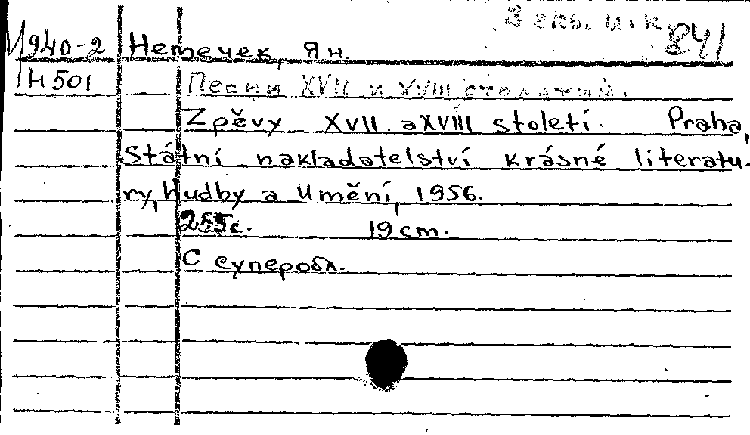 3 экз. и.к 841
И940-2 Немечек, Ян.
Н501 Песни XVII и XVIII столетий.
Zpěvy XVII. a XVIII století. Praha,
Státní nakladatelství krásné literatu-
ry, hudby a umění, 1956.
255с. 19 cm.
С суперобл.